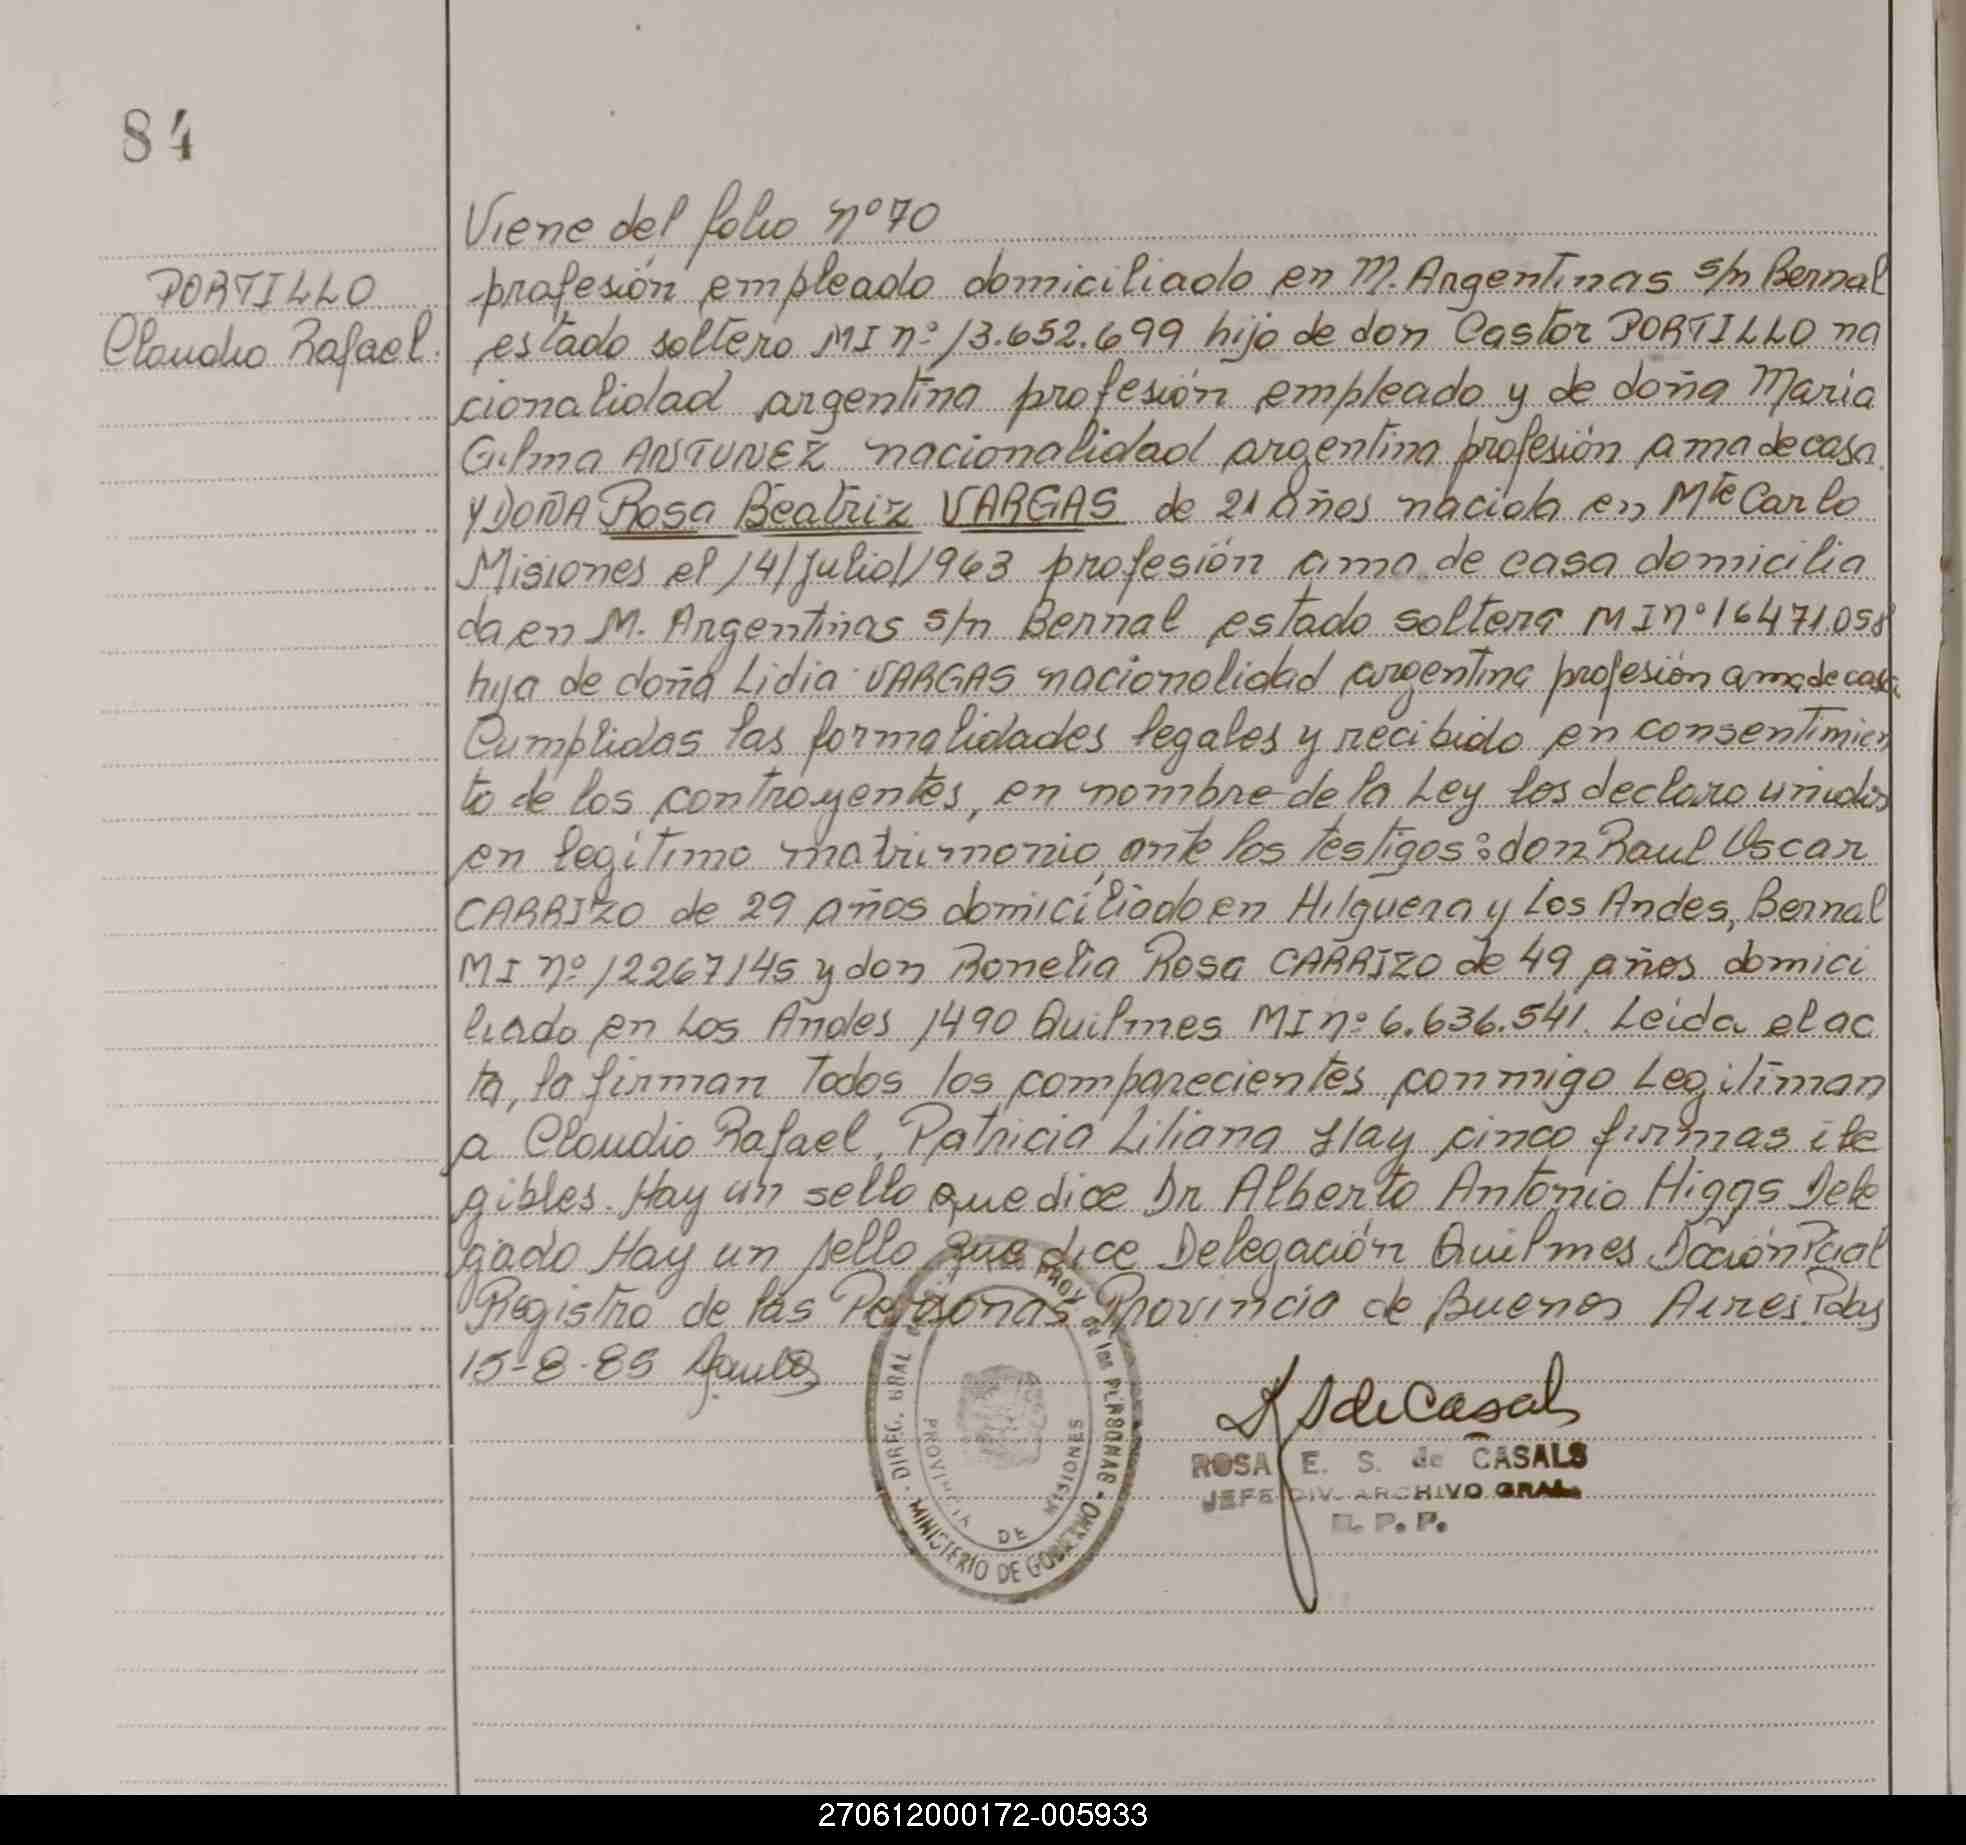 84
PORTILLO
Claudio Rafael.
Viene del folio nº 70
profesión empleado domiciliado en M. Argentinas s/n Bernal
estado soltero MI nº 13.652.699 hijo de don Castor PORTILLO na
cionalidad argentina profesión empleado y de doña María
Gilma ANTUNEZ nacionalidad argentina profesión ama de casa
Y DOÑA Rosa Beatriz VARGAS de 21 años nacida en Mte Carlo
Misiones el 14/Julio/1963 profesión ama de casa domicilia
da en M. Argentinas s/n Bernal estado soltera MI nº 16471.058
hija de doña Lidia VARGAS nacionalidad argentina profesión ama de casa
Cumplidas las formalidades legales y recibido en consentimien
to de los contrayentes, en nombre de la Ley los declaro unidos
en legítimo matrimonio, ante los testigos: don Raul Oscar
CARRIZO de 29 años domiciliado en Hilguera y Los Andes, Bernal
MI nº 12267145 y don Ronelia Rosa CARRIZO de 49 años domici
liado en Los Andes 1490 Quilmes MI nº 6.636.541. Leida el ac
ta, la firman todos los comparecientes conmigo Legitiman
a Claudio Rafael, Patricia Liliana Hay cinco firmas ile
gibles. Hay un sello que dice Dr Alberto Antonio Higgs Dele
gado Hay un sello que dice Delegación Quilmes Dcción Pcial
Registro de las Personas Provincia de Buenos Aires. Pdas
15-8-85
DIREC. GRAL PROV. de las PERSONAS - MINISTERIO DE GOBIERNO
PROVINCIA DE MISIONES
S de Casals
ROSA E. S. de CASALS
JEFE DIV. ARCHIVO GRAL.
R. P. P.
270612000172-005933